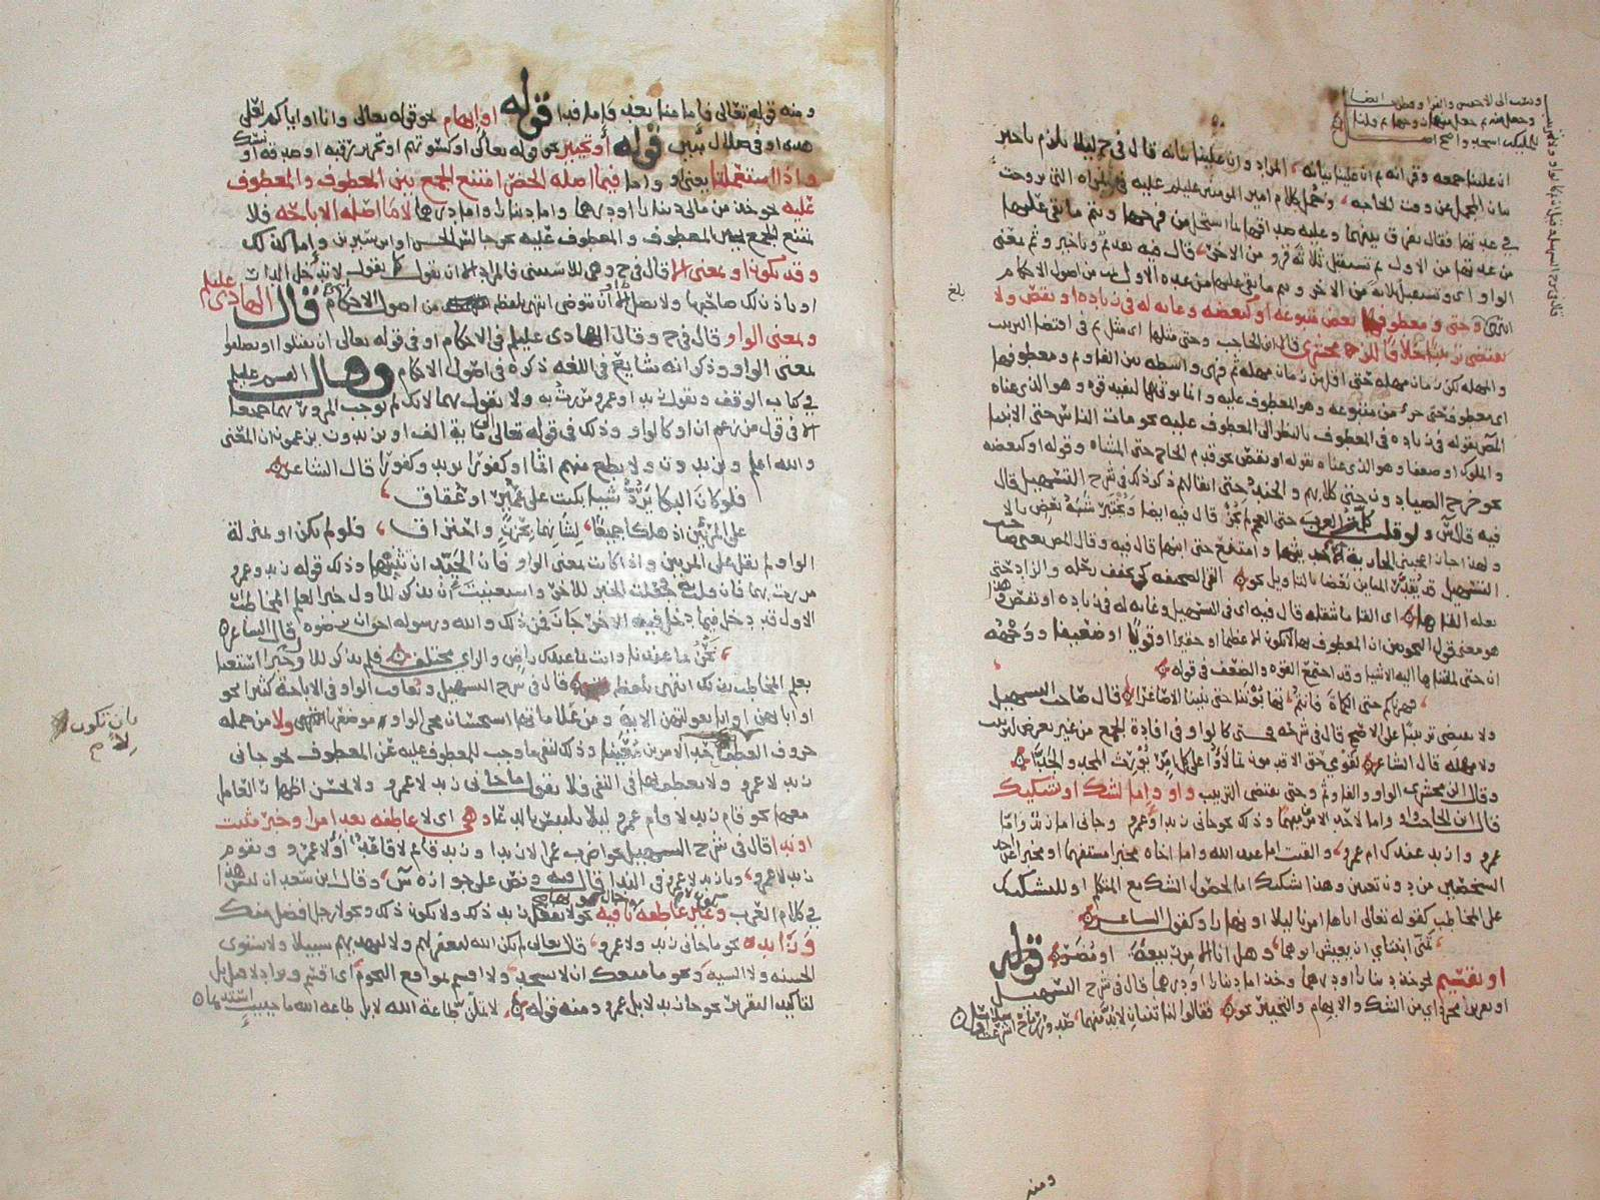 ان علينا جمعه وقرانه ثم ان علينا بيانه المراد وان علينا بيانه قال في ح ليلا يلزم تاخير
بيان المجمل عن وقت الحاجه وتحمل كلام امير المومنين عليلم عليه في المراه التي تزوجت
في عدتها فقال يفرق بينهما وعليه صداقها بما استحل من فرجها وتتم ما بقي عليها
من عدتها من الاول ثم تستقبل ثلاثة قرو من الاخر قال فيه تقديم وتاخير وثم بمعنى
الواو اي وتستقبل ثلاثة من الاخر وتتم ما بقي عليها من عدة الاول من اصول الاحكام
انتهى وحتى ومعطوفها بعض متبوعه او كبعضه وغايه له في زياده او نقص ولا
يقتضي ترتيبا خلافا للزمخشري قال ابن الحاجب وحتى مثلها اي مثل ثم في اقتضا الترتيب
والمهله لكن زمان مهله حتى اقل من زمان مهله ثم فهي واسطه بين الفا وثم ومعطوفها
اي معطوف حتى جزء من متبوعه وهو المعطوف عليه وانما يوتى بها ليفيد قوه وهو الذي عناه
المص بقوله في زياده في المعطوف بالنظر الى المعطوف عليه نحو مات الناس حتى الانبيا
والملوك او ضعفا وهو الذي عناه بقوله او نقص نحو قدم الحاج حتى المشاه وقوله او كبعضه
نحو خرج الصيادون حتى كلابهم والجند حتى اثقالهم ذكر ذلك في شرح التسهيل قال
فيه قال س ولو قلت كلمت العرب حتى العجم لم يجز قال فيه ايضا ويعتبر شبه بعض بالا
ولهذا اجاز اعجبتني الجاريه حتى حديثها وامتنع حتى ابنها قال فيه وقال المص يعني صاحب
التسهيل قد يقدر المباين بعضا بالتاويل نحو القى الصحيفه كي يخفف رحله والزاد حتى
نعله القاها اي القا ما يثقله قال فيه اي في التسهيل وغايه له في زياده او نقص هذا
هو معنى قول النحويين ان المعطوف بها لا يكون الا عظيما او حقيرا او قويا او ضعيفا
ان حتى لمنتها اليه الاشيا وقد اجتمع القوه والضعف في قوله
قهرناكم حتى الكماة فانتم تهابوننا حتى بنينا الاصاغرا قال صاحب التسهيل
ولا يقتضي ترتيبا على الاصح قال في شرحه حتى كالواو في افادة الجمع من غير تعرض لترتيب
ولا مهله قال الشاعر
وقال الزمخشري الواو والفا وثم وحتى يقتضي الترتيب واو واما لشك او تشكيك
قال ابن الحاجب او واما لاحد الامرين مبهما وذلك نحو جاني زيد او عمرو وجاني اما زيد واما
عمرو وازيد عندك ام عمرو والقيت اما عبد الله واما اخاه مخبرا مستفهما او مخبرا عن احد
الشخصين من دون تعيين وهذا تشكيك اما لحصول الشك مع المتكلم او للتشكيك
على المخاطب كقوله تعالى اتاها امرنا ليلا او نهارا وكقول الشاعر
تمنى ابنتاي ان يعيش ابوهما وهل انا الا من ربيعة او مضر قوله
او تقسيم نحو خذ دينارا او درهما وخذ اما دينارا او درهما قال في شرح التسهيل
او تفريق مجرد اي من الشك والابهام والتخيير نحو فقالوا لنا ثنتان لا بد منهما صدور رماح اشرعت او سلاسل
ومنه
بلغ
ومنه قوله تعالى فاما منا بعد واما فدا قوله او ابهام نحو قوله تعالى وانا او اياكم لعلى
هدى او في ضلال مبين قوله او تخيير نحو قوله تعالى او كسوتهم او تحرير رقبه او صدقة او نسك
واذا استعملتا يعني او واما فيما اصله الحضر امتنع الجمع بين المعطوف والمعطوف
عليه نحو خذ من مالي دينارا او درهما واما دينارا واما درهما لا ما اصله الاباحه فلا
يمتنع الجمع بين المعطوف والمعطوف عليه نحو جالس الحسن او ابن سيرين واما كذلك
وقد تكون او بمعنى الا قال في ح وهي للاستثنى فالمراد الا ان تقول كما تقول لا تدخل الدار
او ياذن لك صاحبها ولا يصل الا ان يتوضى انتهى بلفظه من اصول الاحكام قال الهادي عليلم
وبمعنى الواو قال في ح وقال الهادي عليلم في الاحكام او في قوله تعالى ان يقتلوا او يصلبوا
بمعنى الواو وذكر انه شايع في اللغه ذكره في اصول الاحكام وقال عليلم
في كتاب الوقف وتقول زيد او عمرو مررت به ولا تقول بهما لانك لم توجب المرور بهما جميعا
الا في قول من زعم ان او كالواو وذلك في قوله تعالى الى مائة الف او يزيدون بمعنى ان المعنى
والله اعلم ويزيدون ولا تطع منهم اثما او كفورا يريد وكفورا قال الشاعر
فلو كان البكا يرد شيئا بكيت على بجير او عفاق
على المرين اذ هلكا جميعا لشانهما بحزن واحتراق فلو لم تكن او بمنزلة
الواو لم يقل على المرين واذا كانت بمعنى الواو فان الجيد ان تثنيهما وذلك قوله زيد وعمرو
مررت بهما فان قلت به جعلت الخبر للاخر واستغنيت ان تذكر للاول خبرا لعلم المخاطب
الاول قد دخل فيما دخل فيه الاخر جاز فمن ذلك والله ورسوله احق ان يرضوه قال الشاعر
نحن بما عندنا وانت بما عندك راض والراي مختلف فلم يذكر للاول خبرا استغنا
بعلم المخاطب بذلك انتهى بلفظه قال في شرح التسهيل وتعاقب الواو في الاباحة كثيرا نحو
او ابائهن او ابا بعولتهن الايه ومن علاماتها استحسان مجي الواو موضعها انتهى ولا من جمله
حروف العطف لاحد الامرين معينا وذلك لنفي ما وجب للمعطوف عليه عن المعطوف نحو جاني
زيد لا عمرو ولا يعطف بها في النفي فلا تقول ما جاني زيد لا عمرو ولا يحسن اظهار العامل
معها نحو قام زيد لا قام عمرو ليلا يلتبس بالدعا وهي اي لا عاطفه بعد امر او خبر مثبت
او ندا قال في شرح التسهيل نحو اضرب عمرا لا زيدا وزيد قائم لا قاعد او لا عمرو ويقوم
زيد لا عمرو ويا زيد لا عمرو في الندا قال فيه ونص على جوازه س وقال ابن سعدان ليس هذا
في كلام العرب وغير عاطفه نافيه نحو لا يفعل زيد ذلك ولا يكون ذلك ونحو لا رجل افضل منك
وزايده نحو ما جاني زيد ولا عمرو قال تعالى لم يكن الله ليغفر لهم ولا ليهديهم سبيلا ولا تستوي
الحسنه ولا السيه ونحو ما منعك ان لا تسجد ولا اقسم بمواقع النجوم اي اقسم ويراد لا مع بل
لتاكيد التقرير نحو جا زيد لا بل عمرو ومنه قوله لا تملن طاعة الله لا بل طاعه الله ما حييت استدمها
بان تكون